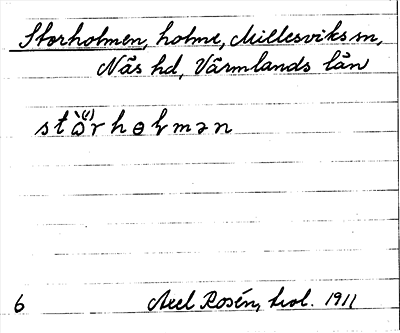 Storholmen, holme, Millesviks sn,
Näs hd, Värmlands län
6 Axel Rosén, trol. 1911